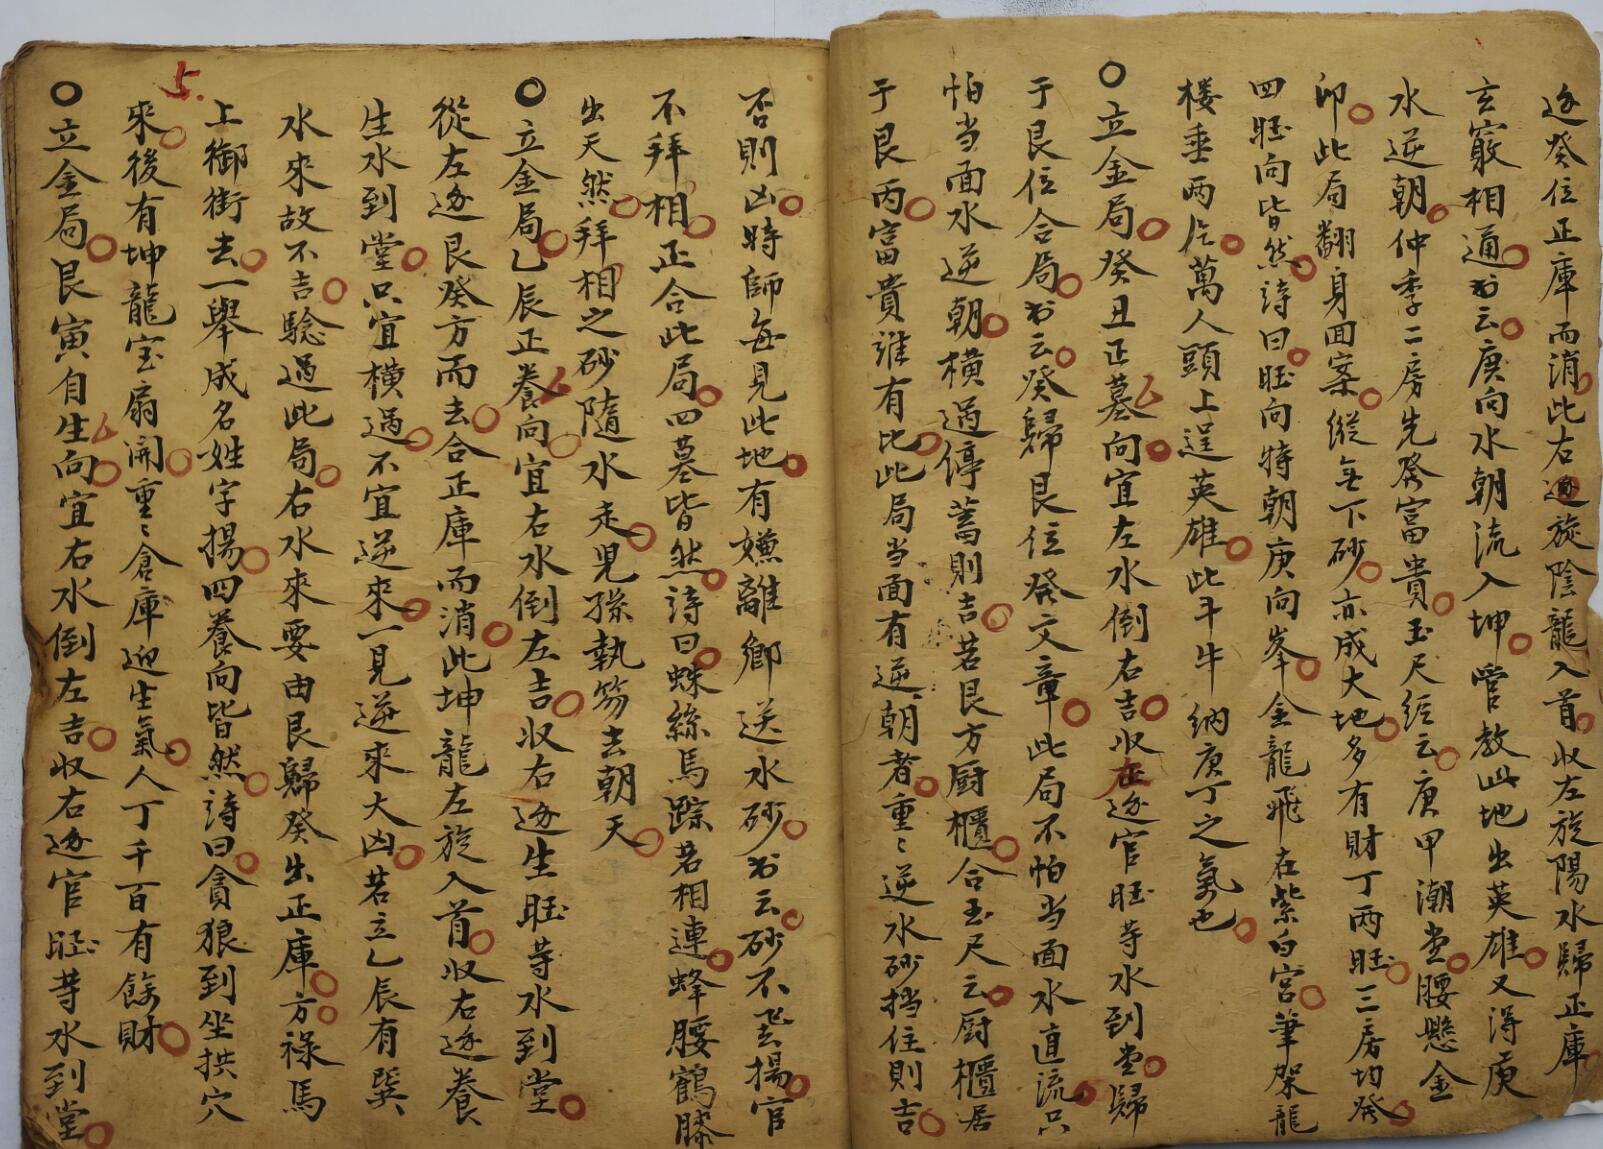 逆癸位正庫而消此右逆旋陰龍入首収左旋陽水歸正庫
玄竅相通书云庚向水朝流入坤管教此地出英雄又淂庚
水逆朝仲季二房先發富貴玉尺經云庚甲潮堂腰懸金
印此局翻身回案縱無下砂亦成大地多有財丁兩旺三房均發
四旺向皆然詩曰旺向特朝庚向峯金龍飛在紫白宮筆架龍
楼垂両片萬人頭上逞英雄此斗牛納庚丁之氣也
立金局癸丑正墓向宜左水倒右吉収左逆官旺等水到堂歸
于艮位合局书云癸歸艮位發文章此局不怕当面水直流只
怕当面水逆朝橫過停蓄則吉若艮方厨櫃合玉尺云厨櫃居
于艮丙富貴誰有比此局当面有逆朝者重々逆水砂挡住則吉
否則凶時師每見此地有嫌離鄉送水砂书云砂不飞揚官
不拜相正合此局四墓皆然詩曰蛛絲馬踪若相連蜂腰鶴膝
出天然拜相之砂隨水走兒孫執笏去朝天
立金局乙辰正養向宜右水倒左吉収右逆生旺等水到堂
從左逆艮癸方而去合正庫而消此坤龍左旋入首収右逆養
生水到堂只宜橫過不宜逆來一見逆來大凶若立乙辰有巽
水來故不吉騐過此局右水來要由艮歸癸出正庫方祿馬
上御街去一舉成名姓字揚四養向皆然詩曰貪狼到坐拱穴
5.
來後有坤龍宝扇開重々倉庫迎生氣人丁千百有餘財
立金局艮寅自生向宜右水倒左吉収右逆官旺等水到堂